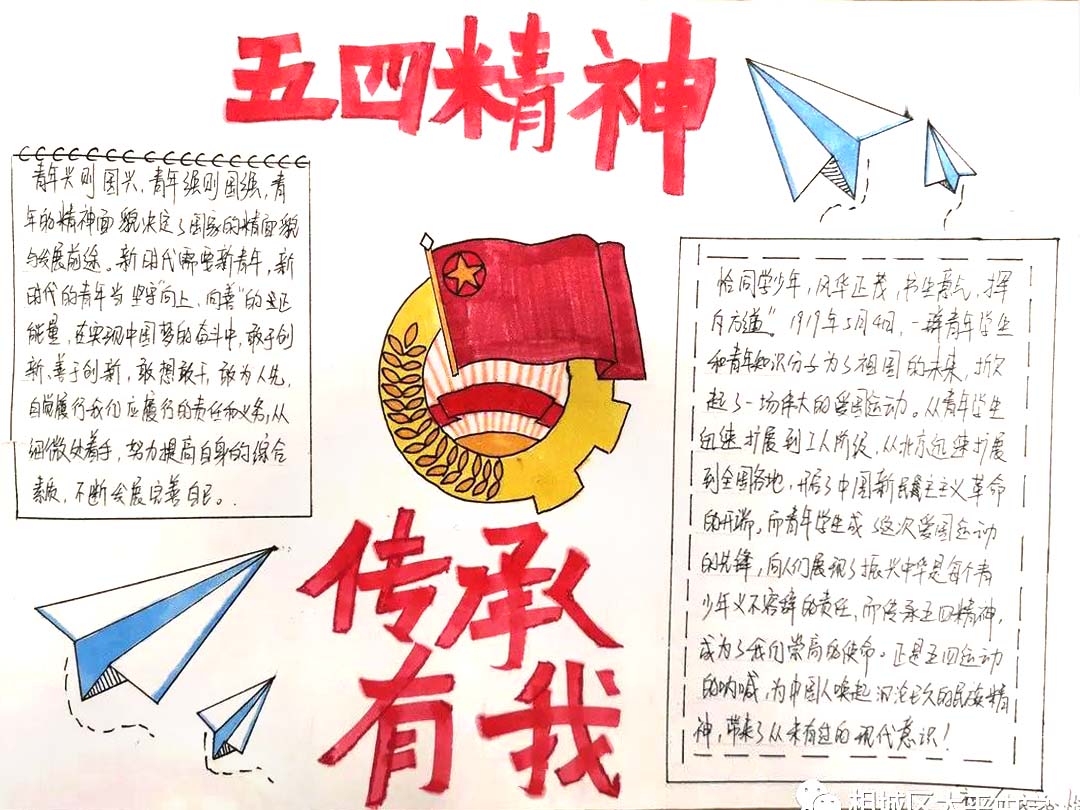 五四精神
青年兴则国兴，青年强则国强，青
年的精神面貌决定了国家的精面貌
与发展前途。新时代需要新青年，新
时代的青年当坚守“向上，向善”的
能量，在实现中国梦的奋斗中，敢于创
新、善于创新，敢想敢干，敢为人先，
自觉履行我们应履行的责任和义务；从
细微处着手，努力提高自身的综合
素质，不断发展完善自己。
恰同学少年，风华正茂，书生意气，挥
斥方遒”。1919年5月4日，一群青年学生
和青年知识分子为了祖国的未来，掀
起了一场伟大的爱国运动。从青年学生
迅速扩展到工人阶级，从北京迅速扩展
到全国各地，开启了中国新民主主义革命
的开端。而青年学生成了这次爱国运动
的先锋，向人们展现了振兴中华是每个青
少年义不容辞的责任，而传承五四精神，
成为了我们崇高的使命。正是五四运动
的呐喊，为中国人唤起沉沦已久的民族精
神，带来了从未有过的现代意识！
传承
有我
相城区太平